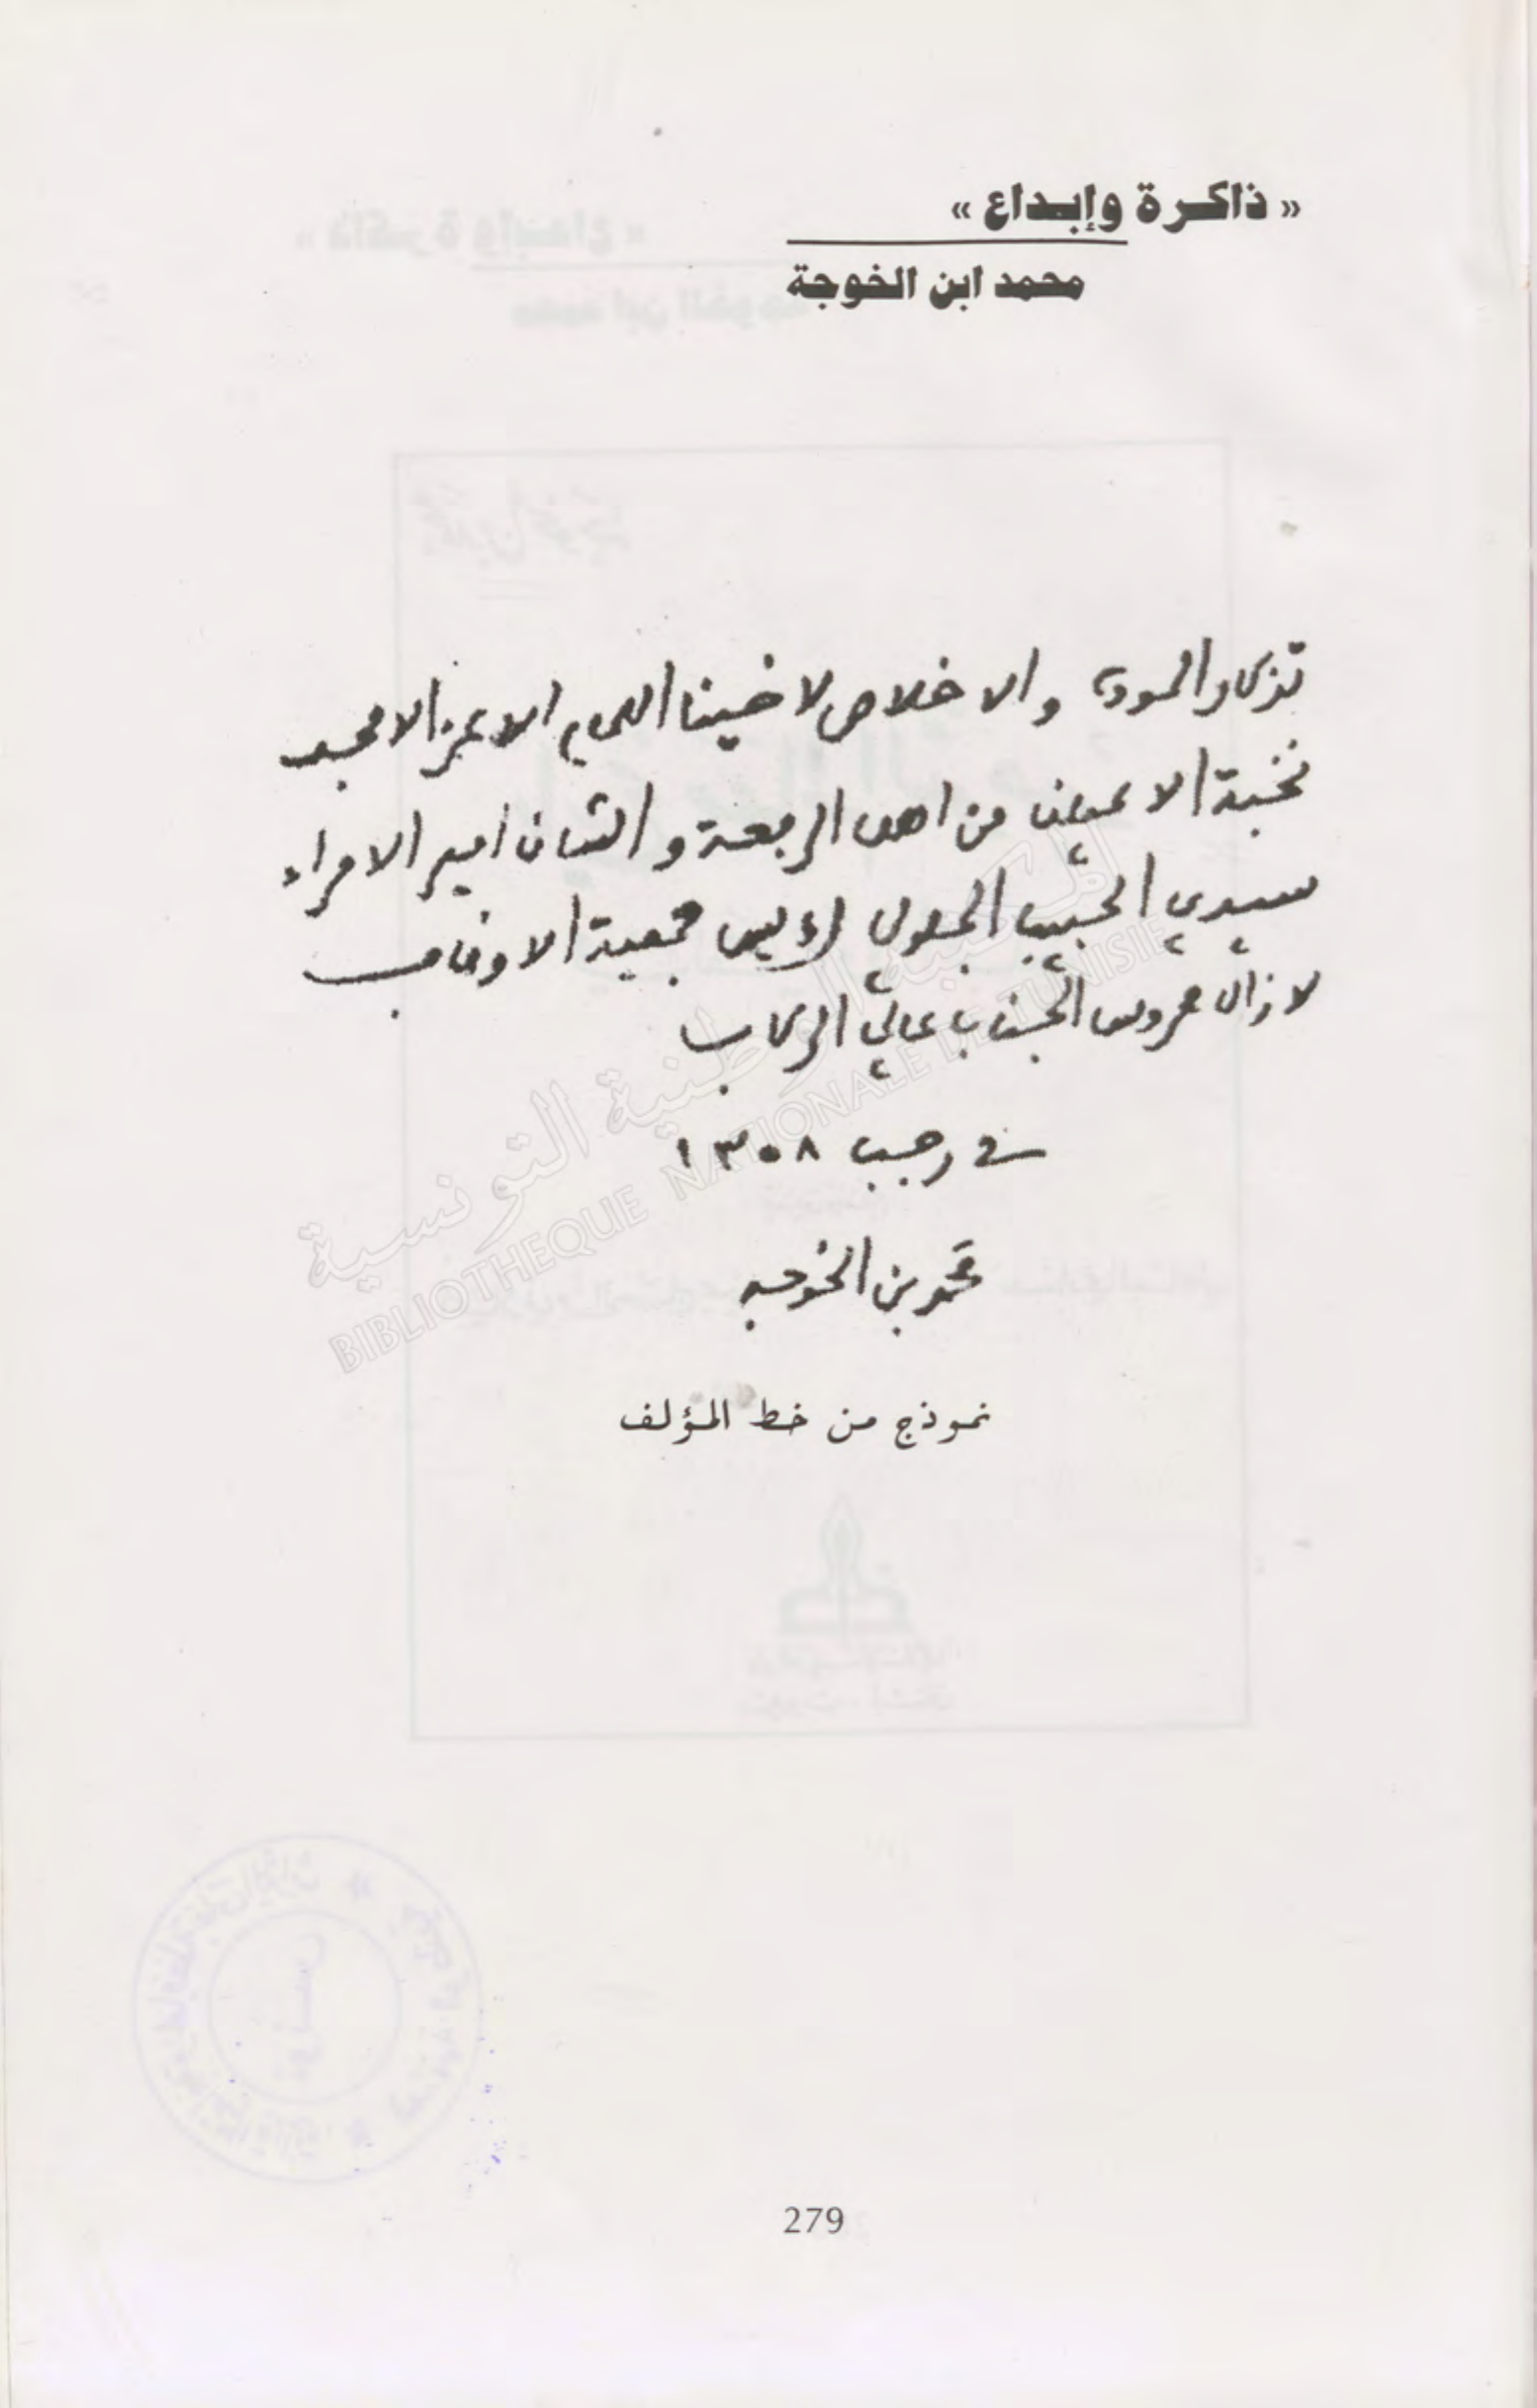 « ذاكرة وإبداع »
محمد ابن الخوجة
تذكار المودة والاخلاص لاخينا الهمام الاعز الامجد
نخبة الاعيان من اهل الرفعة والشان امير الامراء
سيدي الحبيب الجلولي رءيس جمعية الاوقاف
لا زال محروس الجناب عالي الركاب
في رجب ١٣٠٨
محمد بن الخوجه
نموذج من خط المؤلف
المكتبة الوطنية التونسية
BIBLIOTHEQUE NATIONALE DE TUNISIE
279